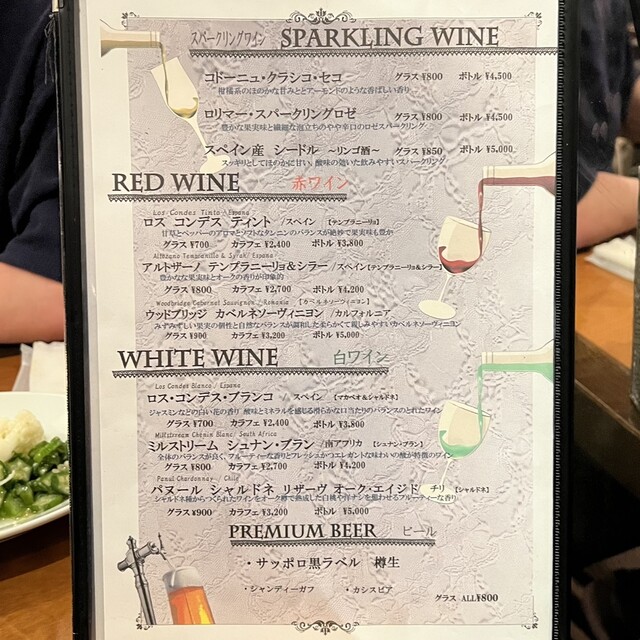 スパークリングワイン SPARKLING WINE
コドーニュ・クラシコ・セコ グラス ¥800 ボトル ¥4,500
柑橘系のほのかな甘みとアーモンドのような香ばしい香り
ロリマー・スパークリングロゼ グラス ¥800 ボトル ¥4,500
豊かな果実味と繊細な泡立ちのやや辛口のロゼスパークリング
スペイン産 シードル ～リンゴ酒～ グラス ¥850 ボトル ¥5,000
スッキリとしてほのかに甘い、酸味の効いた飲みやすいスパークリング
RED WINE 赤ワイン
Los Condes Tinto / Espana
ロス コンデス ティント /スペイン 【テンプラニーリョ】
甘草とペッパーのアロマとソフトなタンニンのバランスが絶妙で果実味も豊か
グラス ¥700 カラフェ ¥2,400 ボトル ¥3,800
Altozano Tempranillo & Syrah / Espana
アルトザーノ テンプラニーリョ&シラー /スペイン【テンプラニーリョ&シラー】
豊かなな果実味とオークの香りが印象的
グラス ¥800 カラフェ ¥2,700 ボトル ¥4,200
Woodbridge Cabernet Sauvignon / Romania 【カベルネソーヴィニヨン】
ウッドブリッジ カベルネソーヴィニヨン /カルフォルニア
みずみずしい果実の個性と自然なバランスが調和した柔らかくて親しみやすいカベルネソーヴィニヨン
グラス ¥900 カラフェ ¥3,200 ボトル ¥5,000
WHITE WINE 白ワイン
Los Condes Blanco / Espana
ロス・コンデス・ブランコ / スペイン 【マカベオ&シャルドネ】
ジャスミンなどの白い花の香り 酸味とミネラルを感じる滑らかな口当たりのバランスのとれたワイン
グラス ¥700 カラフェ ¥2,400 ボトル ¥3,800
Millstream Chenin Blanc / South Africa
ミルストリーム シュナン・ブラン /南アフリカ 【シュナン・ブラン】
全体のバランスが良く、フルーティーな香りとフレッシュかつエレガントな味わいの酸が特徴のワイン
グラス ¥800 カラフェ ¥2,700 ボトル ¥4,200
Panul Chardonnay Chile
パヌール シャルドネ リザーヴ オーク・エイジド チリ 【シャルドネ】
シャルドネ種からつくられたワインをオーク樽で熟成した白桃や洋ナシを想わせるフルーティーな香り
グラス ¥900 カラフェ ¥3,200 ボトル ¥5,000
PREMIUM BEER ビール
・サッポロ黒ラベル 樽生
・シャンディーガフ ・カシスビア グラス ALL¥800